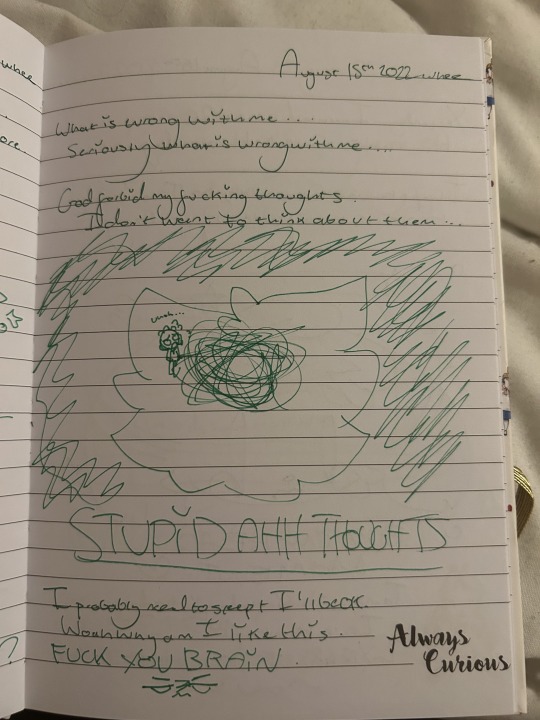 whee
ore.
August 15th 2022 whee
What is wrong with me ...
Seriously what is wrong with me ....
God forbid my fucking thoughts.
I don't want to think about them ...
STUPID AHH THOUGHTS
I probably need to sleep I'll be ok.
am I like this.
FUCK YOU BRAIN
Always
Curious
?